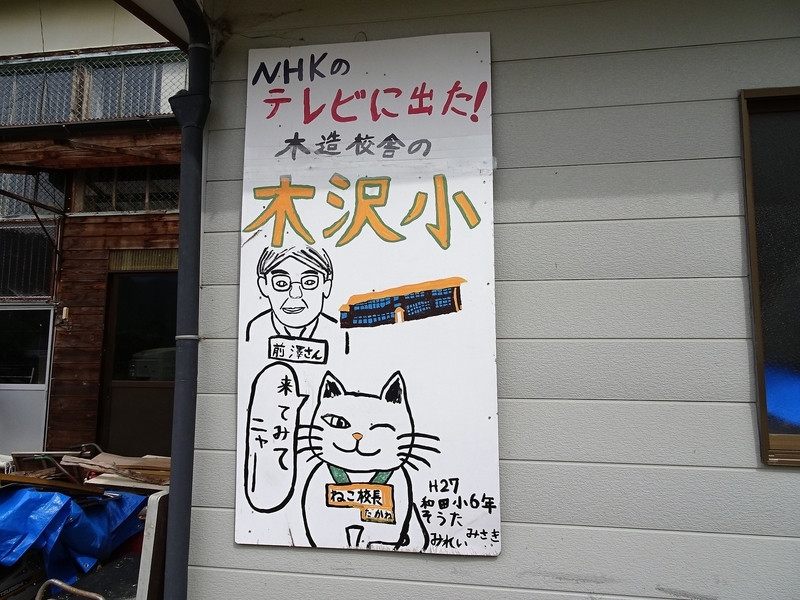 NHKの
テレビに出た!
木造校舎の
木沢小
前澤さん
来てみて
ニャー
ねこ校長
たかね
H27
和田小6年
そうた
みれい みさき